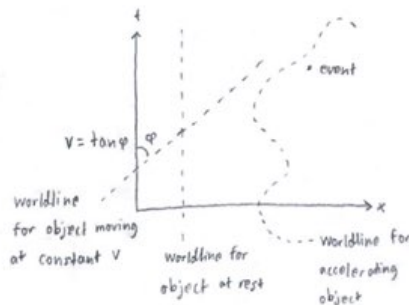 t
event
V = tanφ
φ
worldline
for object moving
at constant V
x
worldline for
object at rest
worldline for
accelerating
object